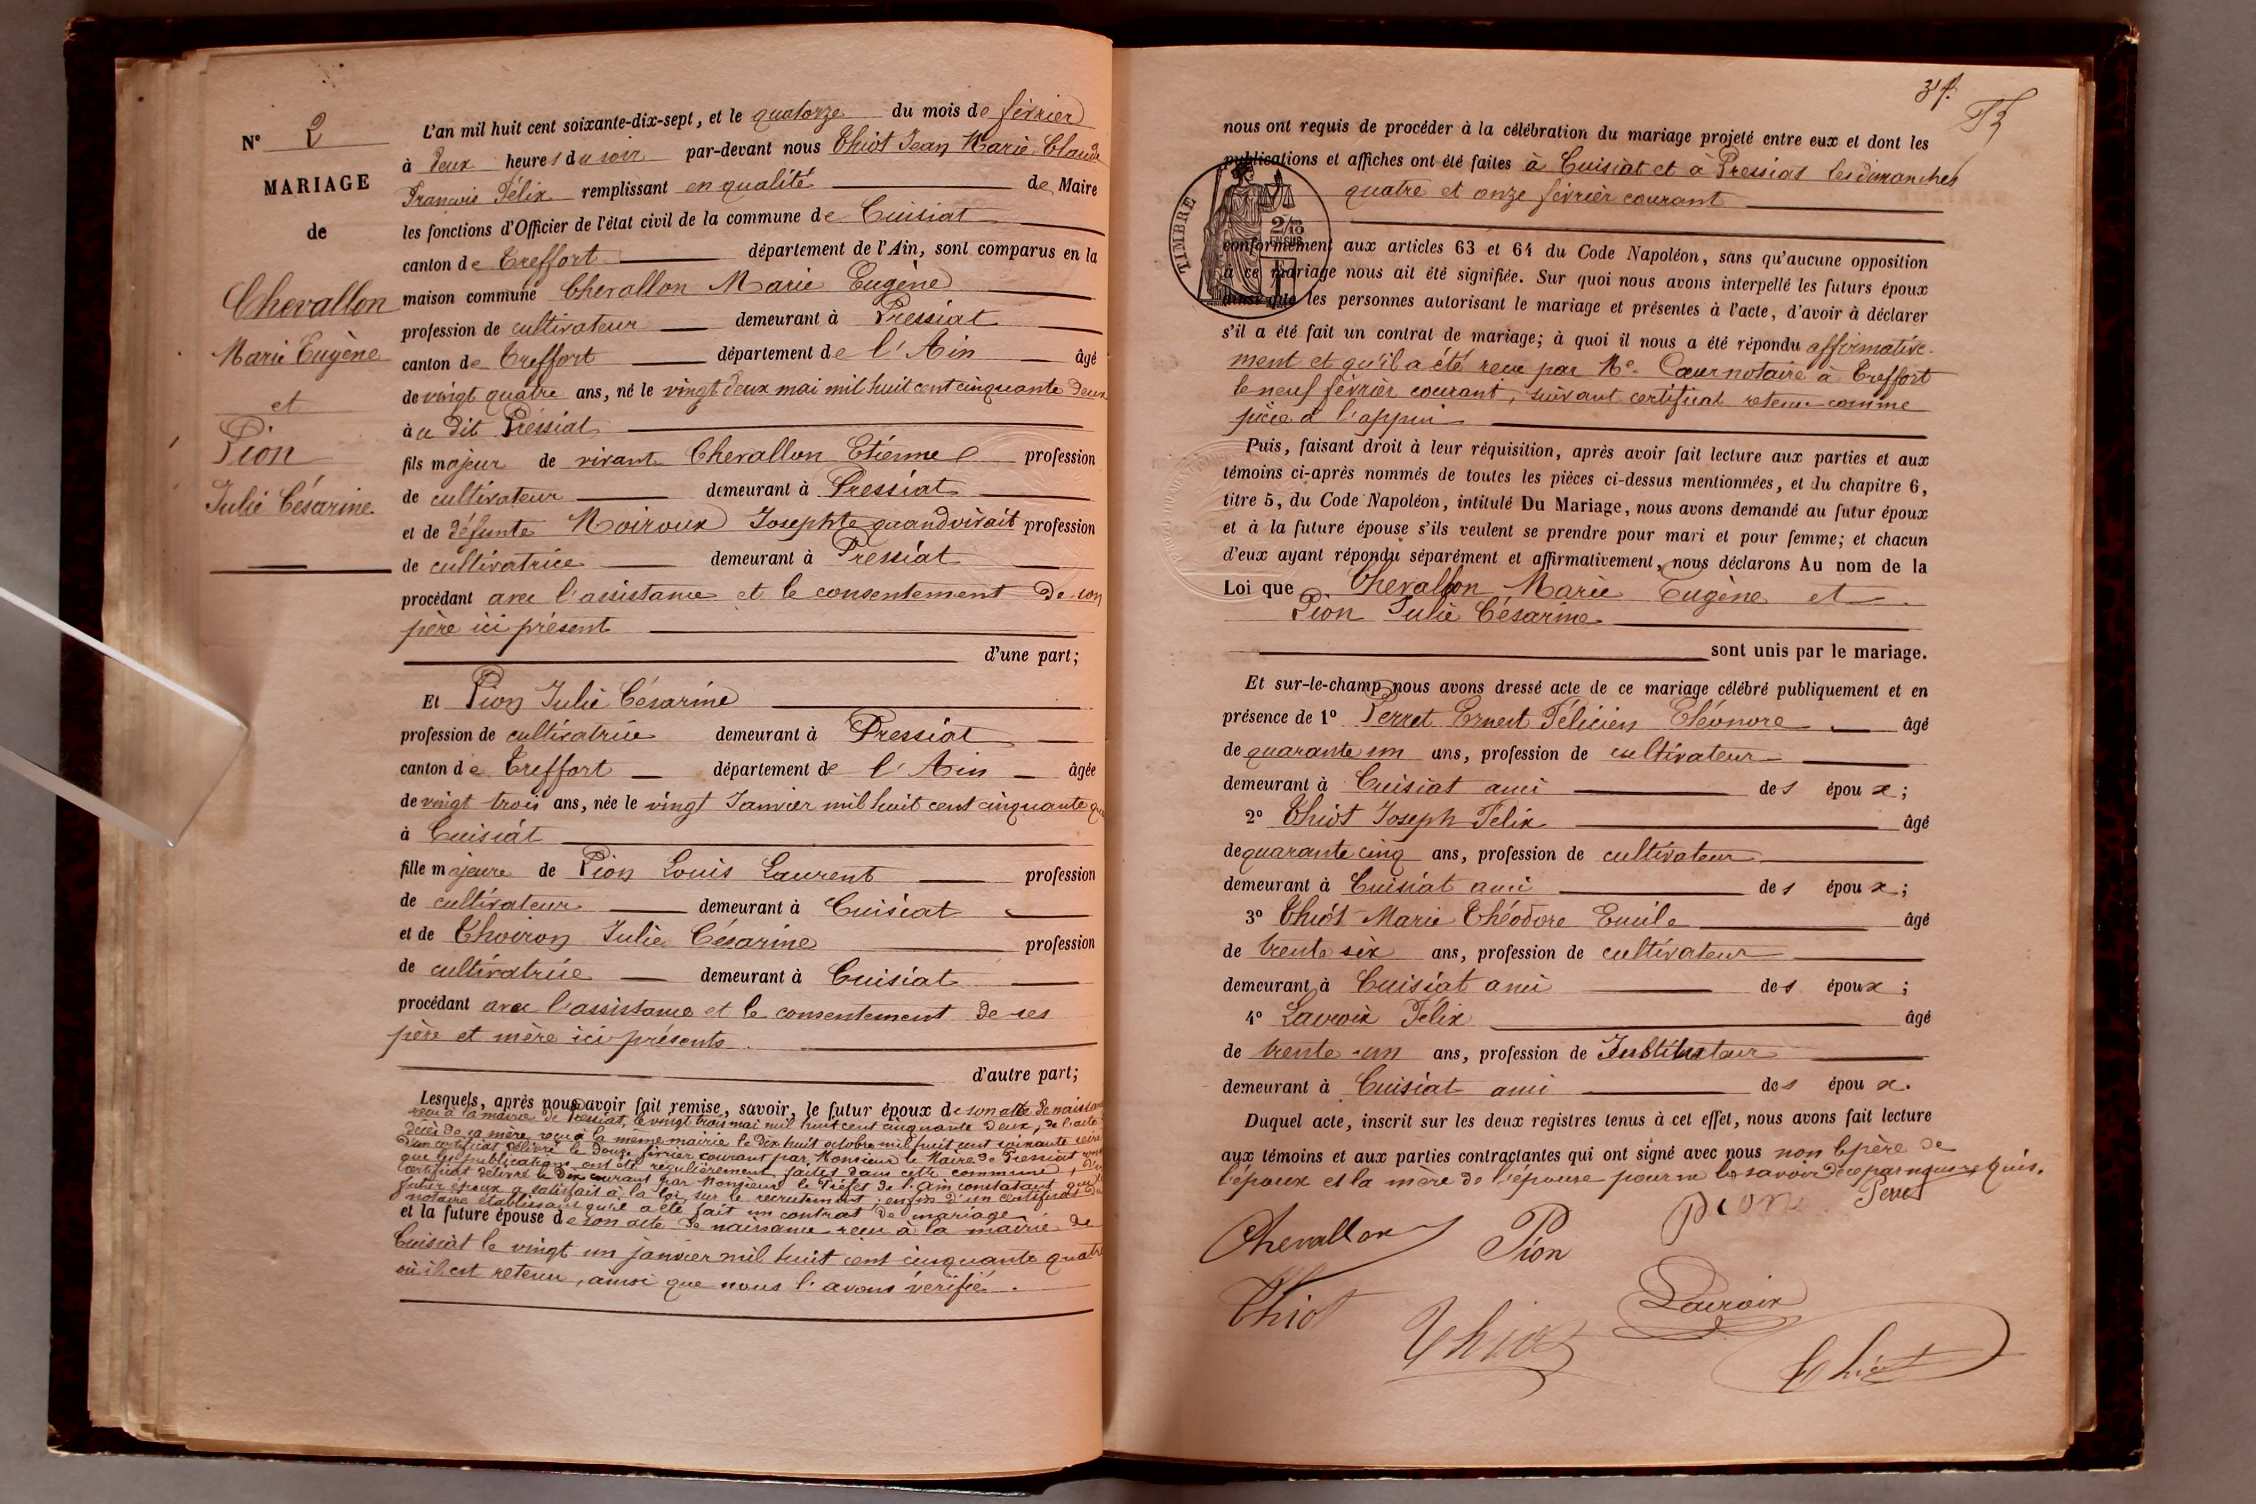 N° 2
MARIAGE
de
Chevallon
Marie Eugène
et
Pion
Julie Césarine
L'an mil huit cent soixante-dix-sept, et le quatorze du mois de février
à deux heures du soir par-devant nous Thiot Jean Marie Claude
François Félix remplissant en qualité de Maire
les fonctions d'Officier de l'état civil de la commune de Cuisiat
canton de Treffort département de l'Ain, sont comparus en la
maison commune Chevallon Marie Eugène
profession de cultivateur demeurant à Pressiat
canton de Treffort département de l'Ain âgé
de vingt quatre ans, né le vingt deux mai mil huit cent cinquante deux
à u dit Préssiat
fils majeur de vivant Chevallon Etienne profession
de cultivateur demeurant à Pressiat
et de défunte Moiroux Josephte quand vivait profession
de cultivatrice demeurant à Pressiat
procédant avec l'assistance et le consentement de son
père ici présent
d'une part;
Et Pion Julie Césarine
profession de cultivatrice demeurant à Pressiat
canton de Treffort département de l'Ain âgée
de vingt trois ans, née le vingt Janvier mil huit cent cinquante
à Cuisiat
fille majeure de Pion Louis Laurent profession
de cultivateur demeurant à Cuisiat
et de Thoiron Julie Césarine profession
de cultivatrice demeurant à Cuisiat
procédant avec l'assistance et le consentement de ses
père et mère ici présents
d'autre part;
Lesquels, après nous avoir fait remise, savoir, le futur époux de son acte de naissance
reçu à la mairie de Pressiat, le vingt trois mai mil huit cent cinquante deux, de l'acte
décès de sa mère reçu à la même mairie le dix huit octobre mil huit cent soixante seize
d'un certificat délivré le douze février courant par Monsieur le Maire de Pressiat
que les publications ont été régulièrement faites dans cette commune,
certificat délivré le dix courant par Monsieur le Préfet de l'Ain constatant que
futur époux a satisfait à la loi sur le recrutement; enfin d'un certificat du
notaire établissant qu'il a été fait un contrat de mariage
et la future épouse de son acte de naissance reçu à la mairie de
Cuisiat le vingt un janvier mil huit cent cinquante quatre
où il est retenu, ainsi que nous l'avons vérifié.
nous ont requis de procéder à la célébration du mariage projeté entre eux et dont les
publications et affiches ont été faites à Cuisiat et à Pressiat les dimanches
quatre et onze février courant
TIMBRE
2/10
EN SUS
conformément aux articles 63 et 64 du Code Napoléon, sans qu'aucune opposition
à ce mariage nous ait été signifiée. Sur quoi nous avons interpellé les futurs époux
ainsi que les personnes autorisant le mariage et présentes à l'acte, d'avoir à déclarer
s'il a été fait un contrat de mariage; à quoi il nous a été répondu affirmative-
ment et qu'il a été reçu par Me. Cœur notaire à Treffort
le neuf février courant, suivant certificat retenu comme
pièce à l'appui
Puis, faisant droit à leur réquisition, après avoir fait lecture aux parties et aux
témoins ci-après nommés de toutes les pièces ci-dessus mentionnées, et du chapitre 6,
titre 5, du Code Napoléon, intitulé Du Mariage, nous avons demandé au futur époux
et à la future épouse s'ils veulent se prendre pour mari et pour femme; et chacun
d'eux ayant répondu séparément et affirmativement, nous déclarons Au nom de la
Loi que Chevallon Marie Eugène et
Pion Julie Césarine
sont unis par le mariage.
Et sur-le-champ nous avons dressé acte de ce mariage célébré publiquement et en
présence de 1° Perret Ernest Félicien Eléonore âgé
de quarante un ans, profession de cultivateur
demeurant à Cuisiat ami des époux;
2° Thiot Joseph Félix âgé
de quarante cinq ans, profession de cultivateur
demeurant à Cuisiat ami des époux;
3° Thiot Marie Théodore Emile âgé
de trente six ans, profession de cultivateur
demeurant à Cuisiat ami des époux;
4° Lacroix Félix âgé
de trente un ans, profession de Instituteur
demeurant à Cuisiat ami des époux.
Duquel acte, inscrit sur les deux registres tenus à cet effet, nous avons fait lecture
aux témoins et aux parties contractantes qui ont signé avec nous non le père de
l'époux et la mère de l'épouse pour ne le savoir de ce par nous requis.
Chevallon Pion pion Perret
Thiot Thiot Lacroix Thiot